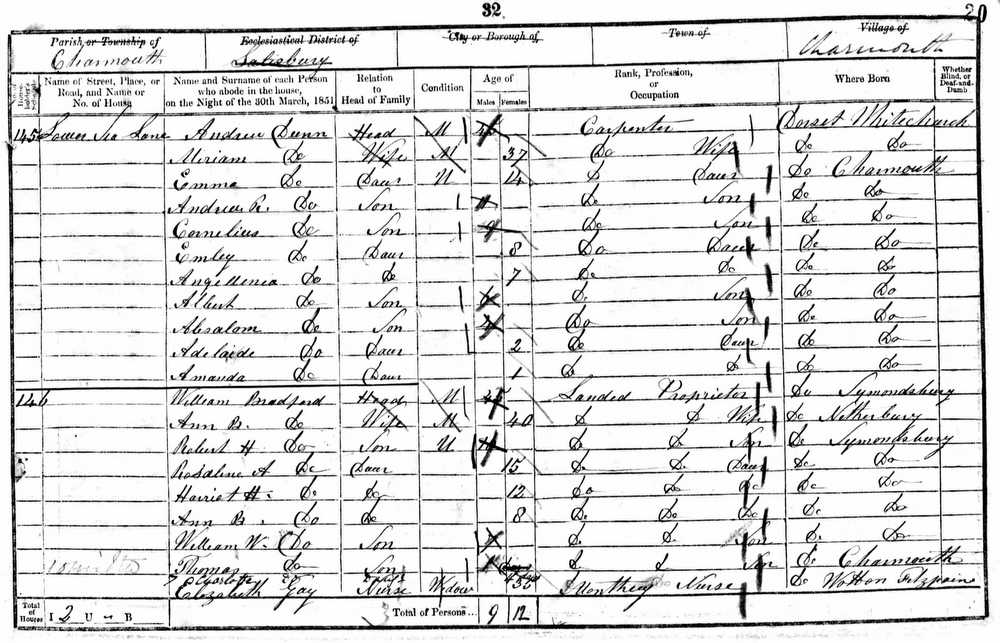 32
20
Parish or Township of Ecclesiastical District of City or Borough of Town of Village of
Charmouth Salisbury Charmouth
Name of Street, Place, or Road, and Name or No. of House
Name and Surname of each Person who abode in the house, on the Night of the 30th March, 1851
Relation to Head of Family
Condition
Age of
Males Females
Rank, Profession, or Occupation
Where Born
Whether Blind, or Deaf-and-Dumb
145 Lower Sea Lane Andrew Dunn Head M Carpenter Dorset Whitchurch
Miriam Do Wife M 37 Do Wife Do Do
Emma Do Daur U 14 Do Daur Do Charmouth
Andrew R. Do Son 11 Do Son Do Do
Cornelius Do Son 9 Do Son Do Do
Emley Do Daur 8 Do Daur Do Do
Angellenia Do Do 7 Do Do Do Do
Albert Do Son Do Son Do Do
Absalom Do Son Do Son Do Do
Adelaide Do Daur 2 Do Daur Do Do
Amanda Do Daur 1 Do Do Do Do
146 William Bradford Head M 45 Landed Proprietor Do Symondsbury
Ann B. Do Wife M 40 Do Do Wife Do Netherbury
Robert H. Do Son U Do Do Son Do Symondsbury
Rosaline A Do Daur 15 Do Do Daur Do Do
Harriet H. Do Do 12 Do Do Do Do Do
Ann B. Do Do 8 Do Do Do Do Do
William W. Do Son Do Do Son Do Do
Thomas Do Son Do Do Son Do Charmouth
Charlotte
Elizabeth Gay Nurse Widow Monthly Nurse Do Wotton Fitzpain
Total of Houses I 2 U — B Total of Persons... 9 12